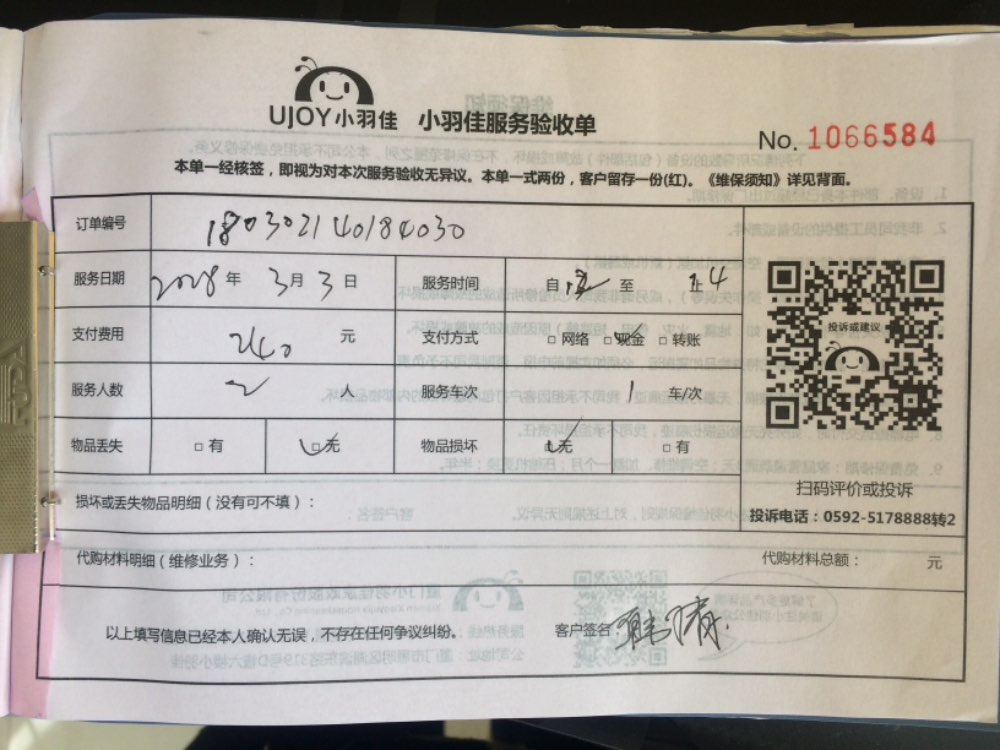 UJOY小羽佳 小羽佳服务验收单
No. 1066584
本单一经核签，即视为对本次服务验收无异议。本单一式两份，客户留存一份(红)。《维保须知》详见背面。
订单编号 180302140184030
服务日期 2018年3月3日 服务时间 自 至 14
支付费用 240 元 支付方式 □网络 □现金 □转账
服务人数 2 人 服务车次 1 车/次
物品丢失 □有 □无 物品损坏 □无 □有
投诉或建议
扫码评价或投诉
损坏或丢失物品明细（没有可不填）：
投诉电话：0592-5178888转2
代购材料明细（维修业务）： 代购材料总额： 元
以上填写信息已经本人确认无误，不存在任何争议纠纷。 客户签名